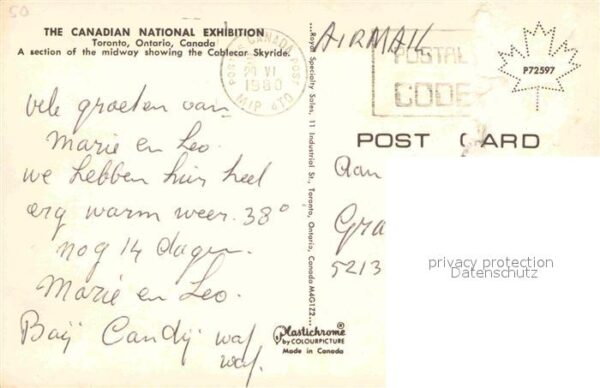 50
THE CANADIAN NATIONAL EXHIBITION
Toronto, Ontario, Canada
A section of the midway showing the Cablecar Skyride.
CANADA POST
20 VI
1980
M1P 4T0
POSTAL
CODE
AIRMAIL
P72597
POST CARD
vele groeten van
Marie en Leo.
we hebben hier heel
erg warm weer. 38°
nog 14 dagen.
Marie en Leo.
Baÿ Candÿ waf
waf.
...Royal Specialty Sales, 11 Industrial St., Toronto, Ontario, Canada M4G1Z2...
Aan
Gra
5213
privacy protection
Datenschutz
Plastichrome®
by COLOURPICTURE
Made in Canada